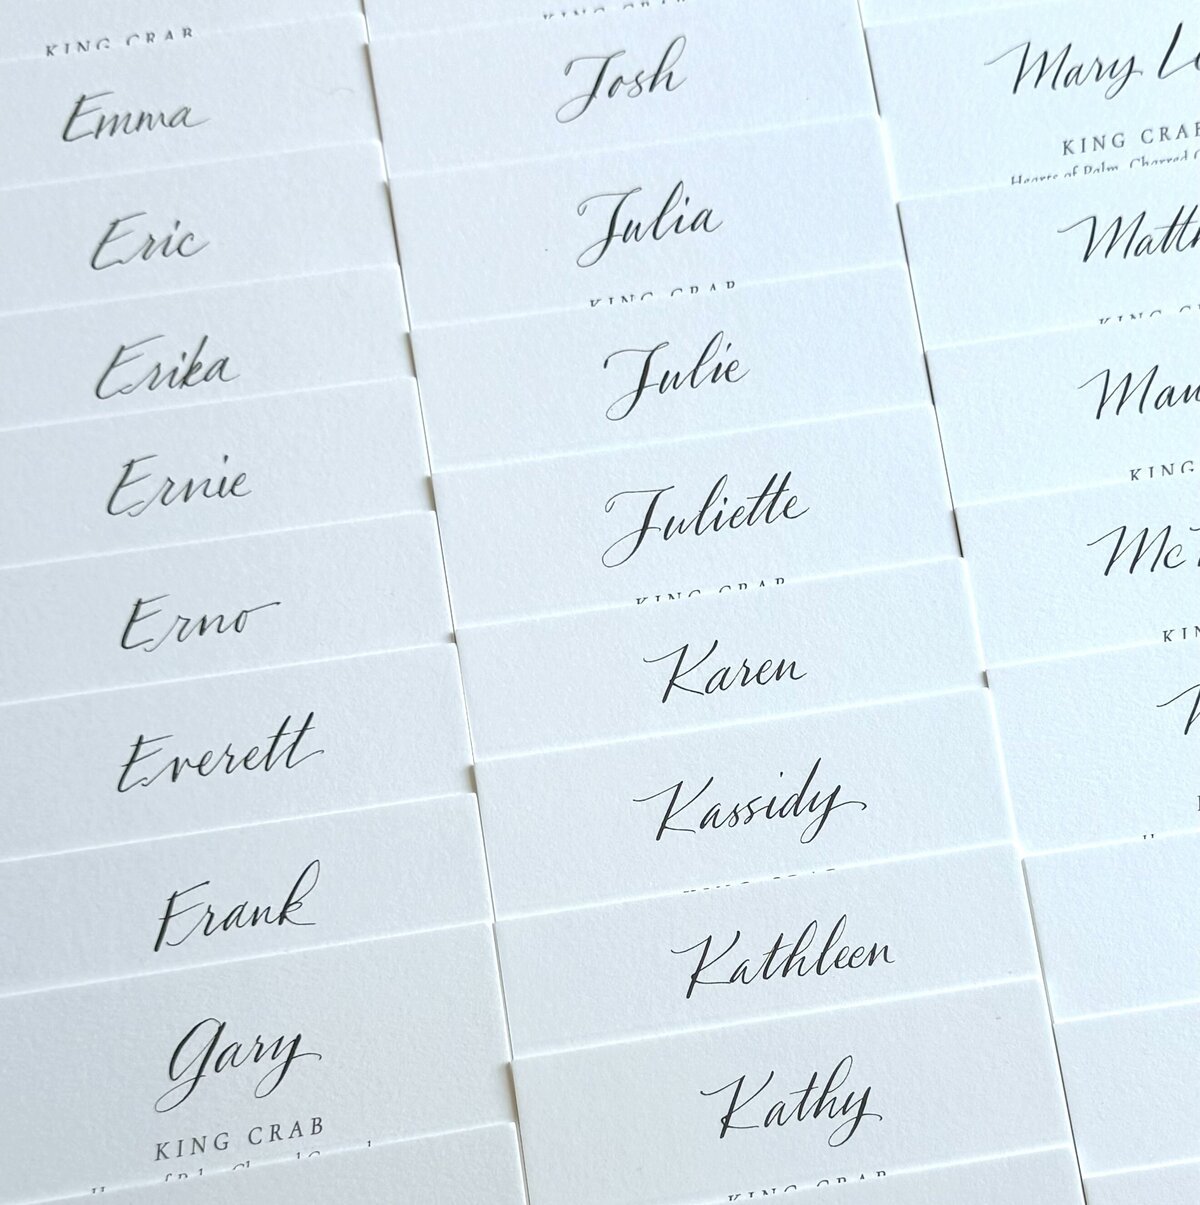 KING CRAB
Emma
Eric
Erika
Ernie
Erno
Everett
Frank
Gary
KING CRAB
Josh
Julia
KING CRAB
Julie
Juliette
KING CRAB
Karen
Kassidy
Kathleen
Kathy
KING CRAB
Mary
KING CRAB
Hearts of Palm, Charred
KING